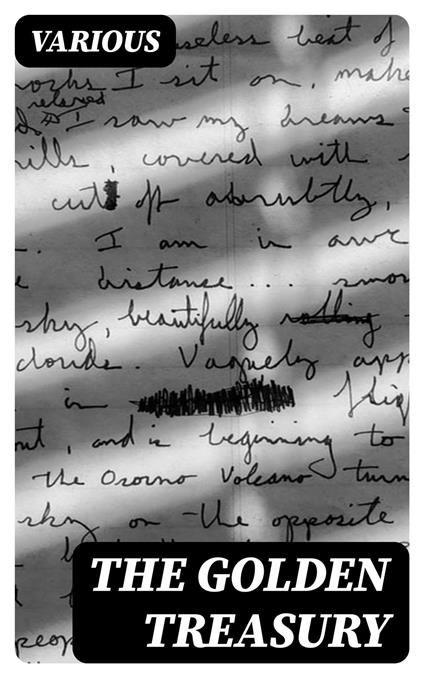 VARIOUS
useless beat of
rocks I sit on, make
relaxed
I saw my dreams
hills, covered with
cut off abruptly,
I am in awe
distance ....
sky, beautifully rolling
clouds. Vaguely app
in
out, and is beginning to
the Osorno Volcano turn
sky on the opposite
THE GOLDEN
TREASURY
peop